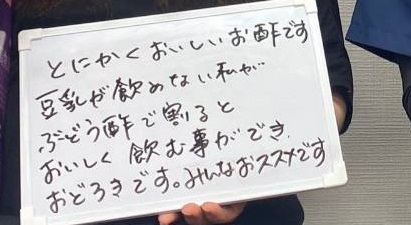 とにかくおいしいお酢です
豆乳が飲めない私が
ぶどう酢で割ると
おいしく飲む事ができ
おどろきです。みんなおススメです